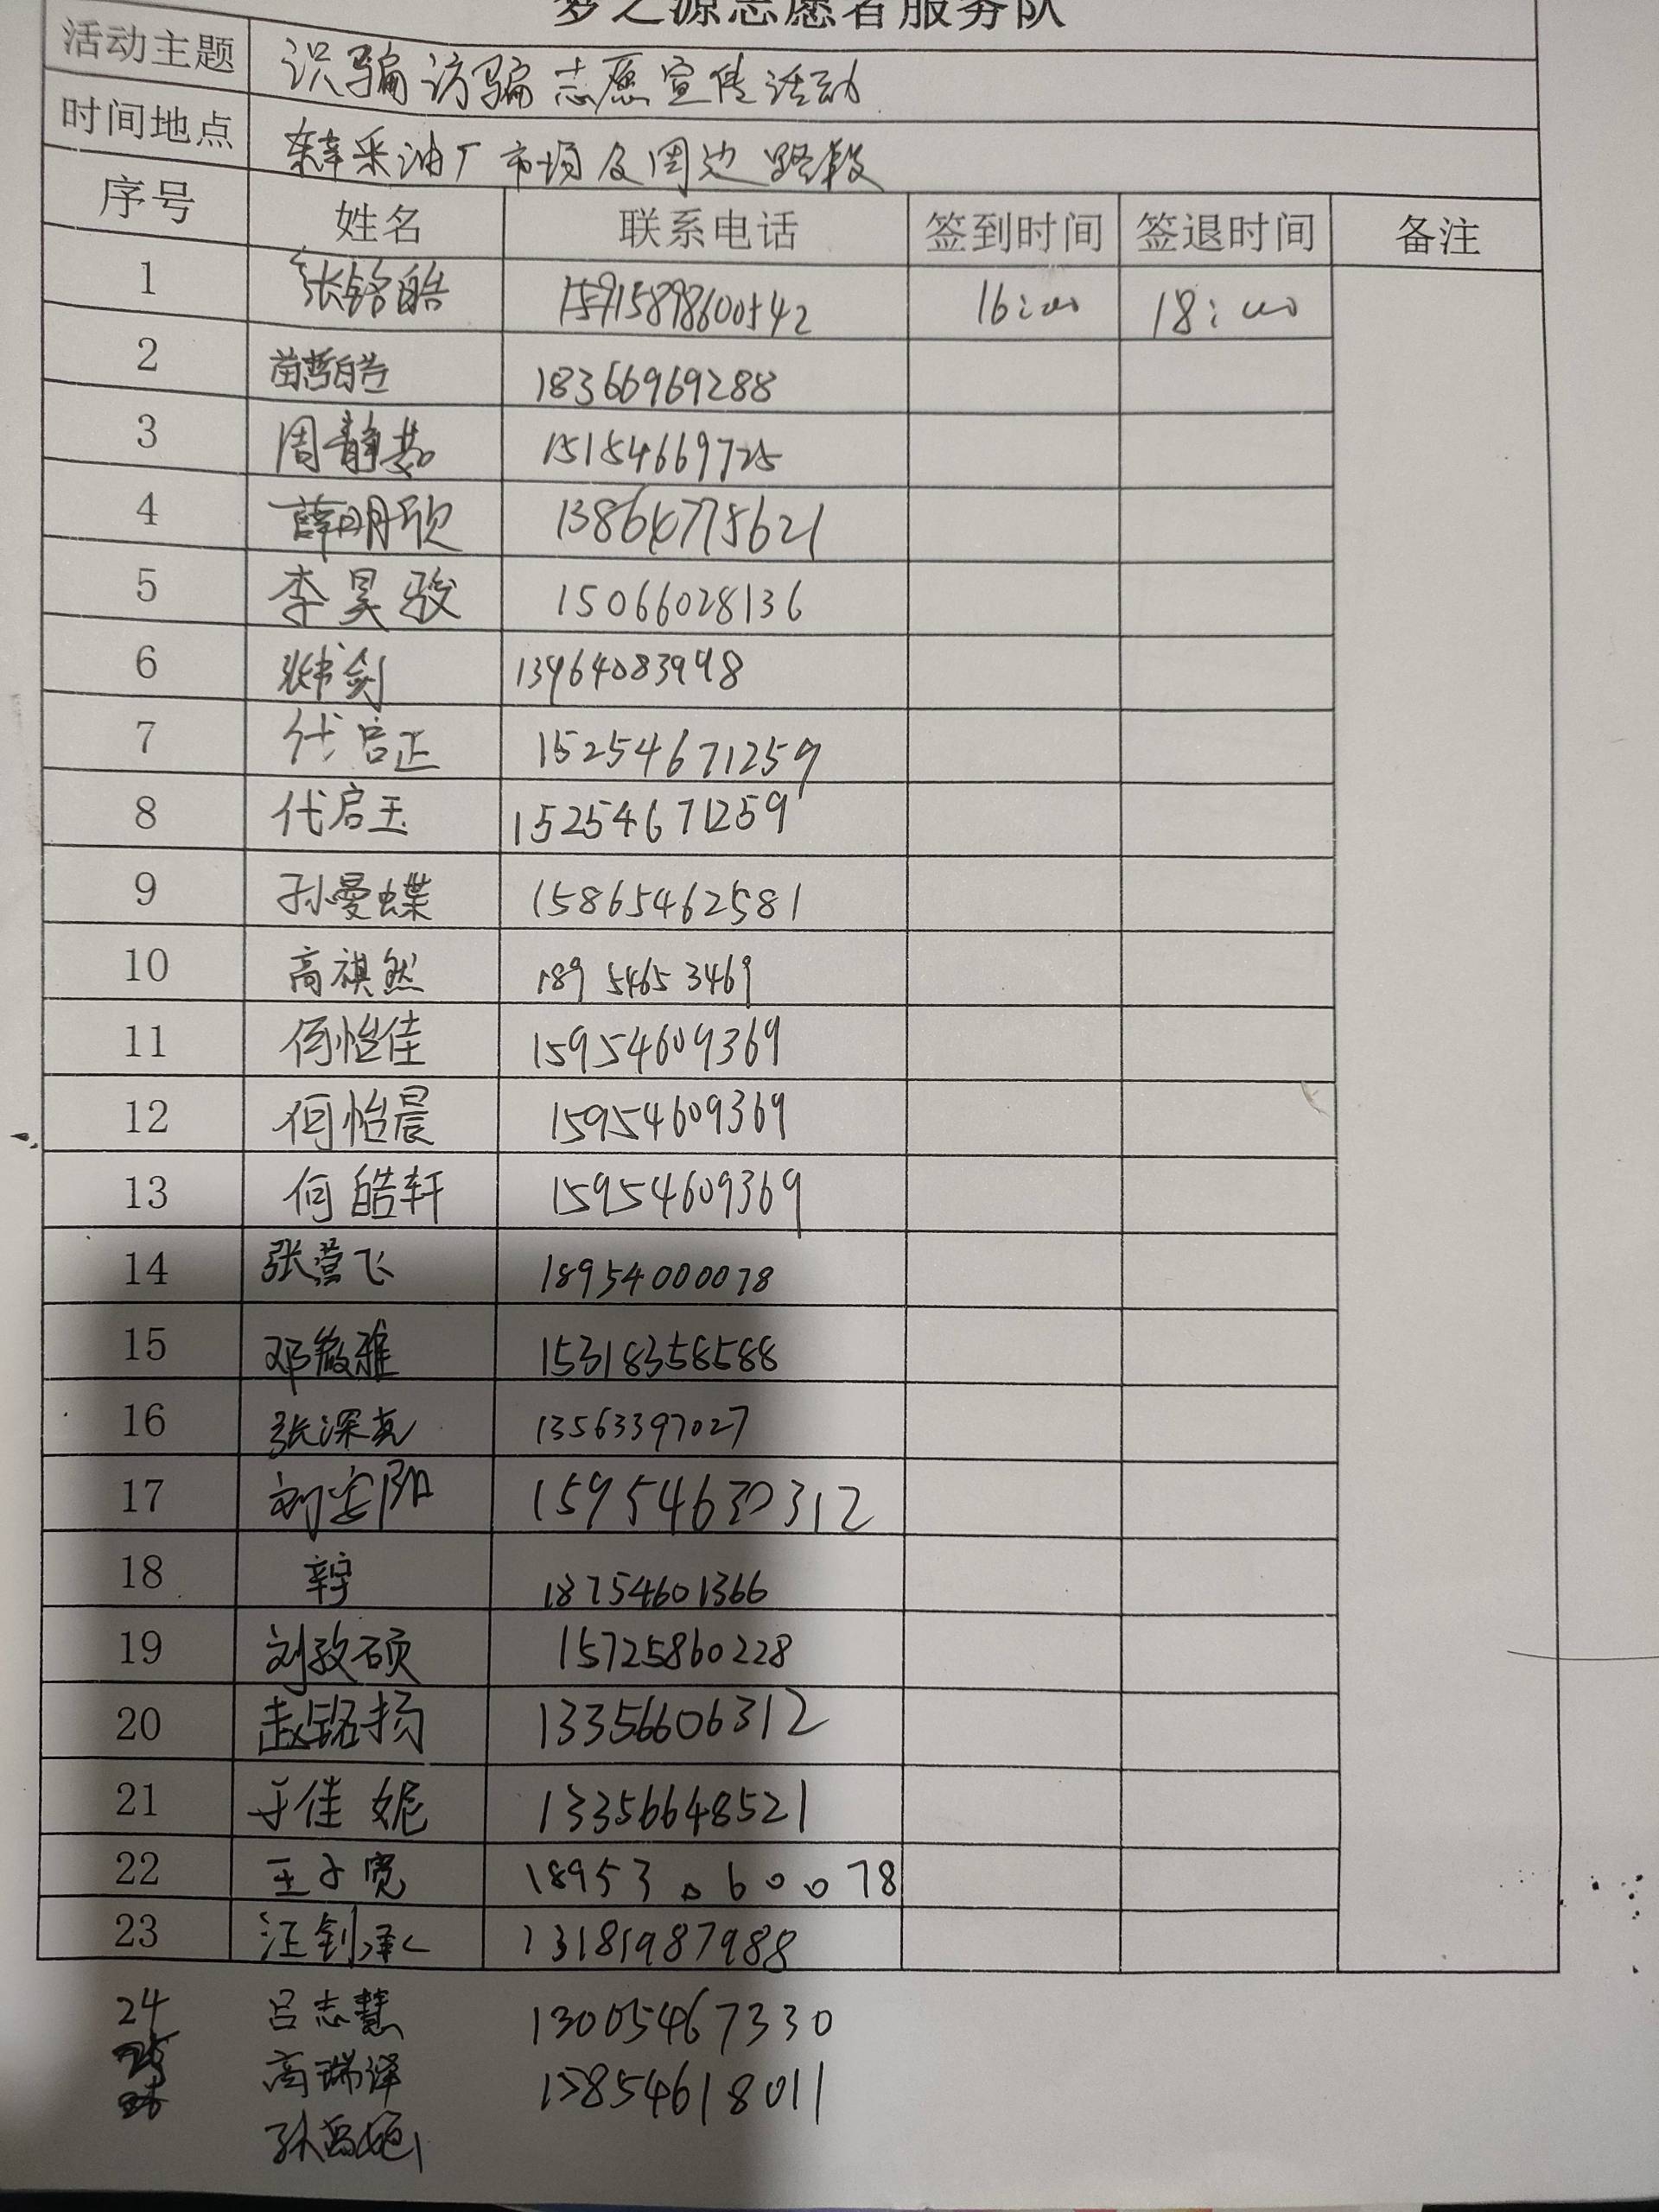 梦之源志愿者服务队
活动主题 识骗访骗志愿宣传活动
时间地点 东辛采油厂市场及周边路段
序号 姓名 联系电话 签到时间 签退时间 备注
1 张铭皓 16:00 18:00
2 苗哲皓 18366969288
3 周静茹 15154669725
4 薛明欣 13864775621
5 李昊骏 15066028136
6 剑 13964083998
7 代启正 15254671259
8 代启玉 15254671259
9 孙曼蝶 15865462581
10 高祺然 18954653469
11 何怡佳 15954609369
12 何怡晨 15954609369
13 何皓轩 15954609369
14 张营飞 18954000078
15 邓薇雅 15318358588
16 张深亮 13563397027
17 刘安阳 15954630312
18 辛宇 18754601366
19 刘政硕 15725860228
20 赵铭扬 13356606312
21 于佳妮 13356648521
22 王子宽 18953060078
23 汪钊承 13181987988
24 吕志慧 13005467330
25 高瑞泽 15854618011